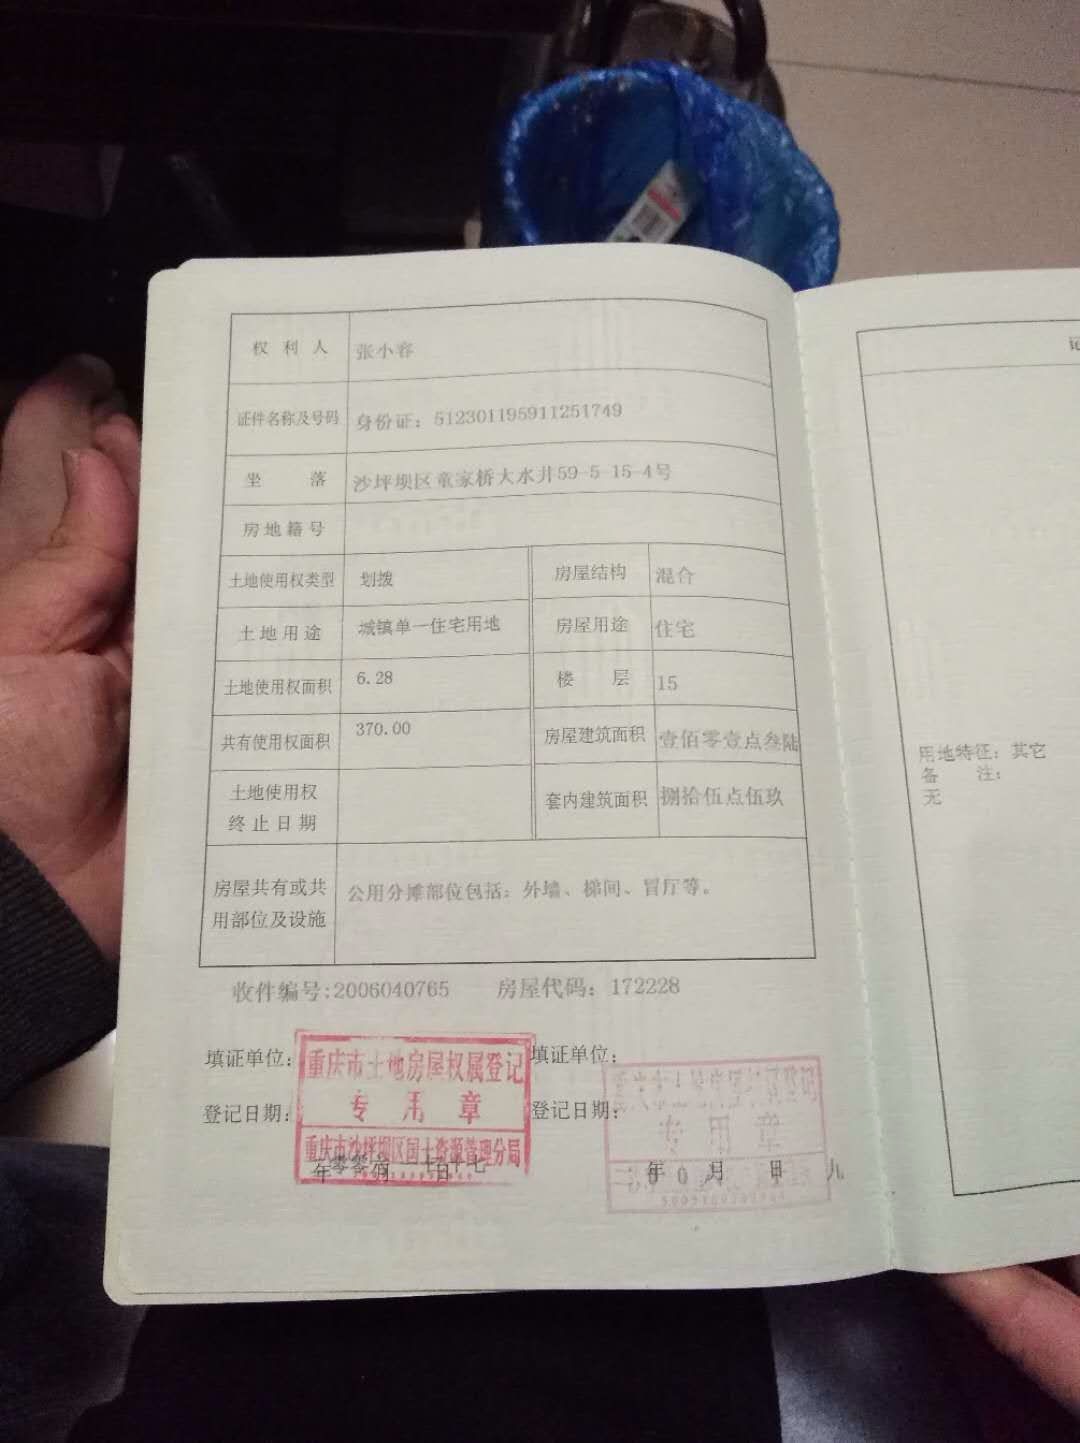 权利人 张小容
证件名称及号码 身份证：512301195911251749
坐落 沙坪坝区童家桥大水井59-5-15-4号
房地籍号
土地使用权类型 划拨 房屋结构 混合
土地用途 城镇单一住宅用地 房屋用途 住宅
土地使用权面积 6.28 楼层 15
共有使用权面积 370.00 房屋建筑面积 壹佰零壹点叁陆
土地使用权
终止日期
套内建筑面积 捌拾伍点伍玖
房屋共有或共
用部位及设施
公用分摊部位包括：外墙、梯间、冒厅等。
收件编号:2006040765 房屋代码：172228
填证单位： 填证单位：
重庆市土地房屋权属登记
专用章
重庆市沙坪坝区国土资源管理分局
登记日期： 登记日期：
年 月 日
专用章
年 月 日
记
用地特征：其它
备 注：
无